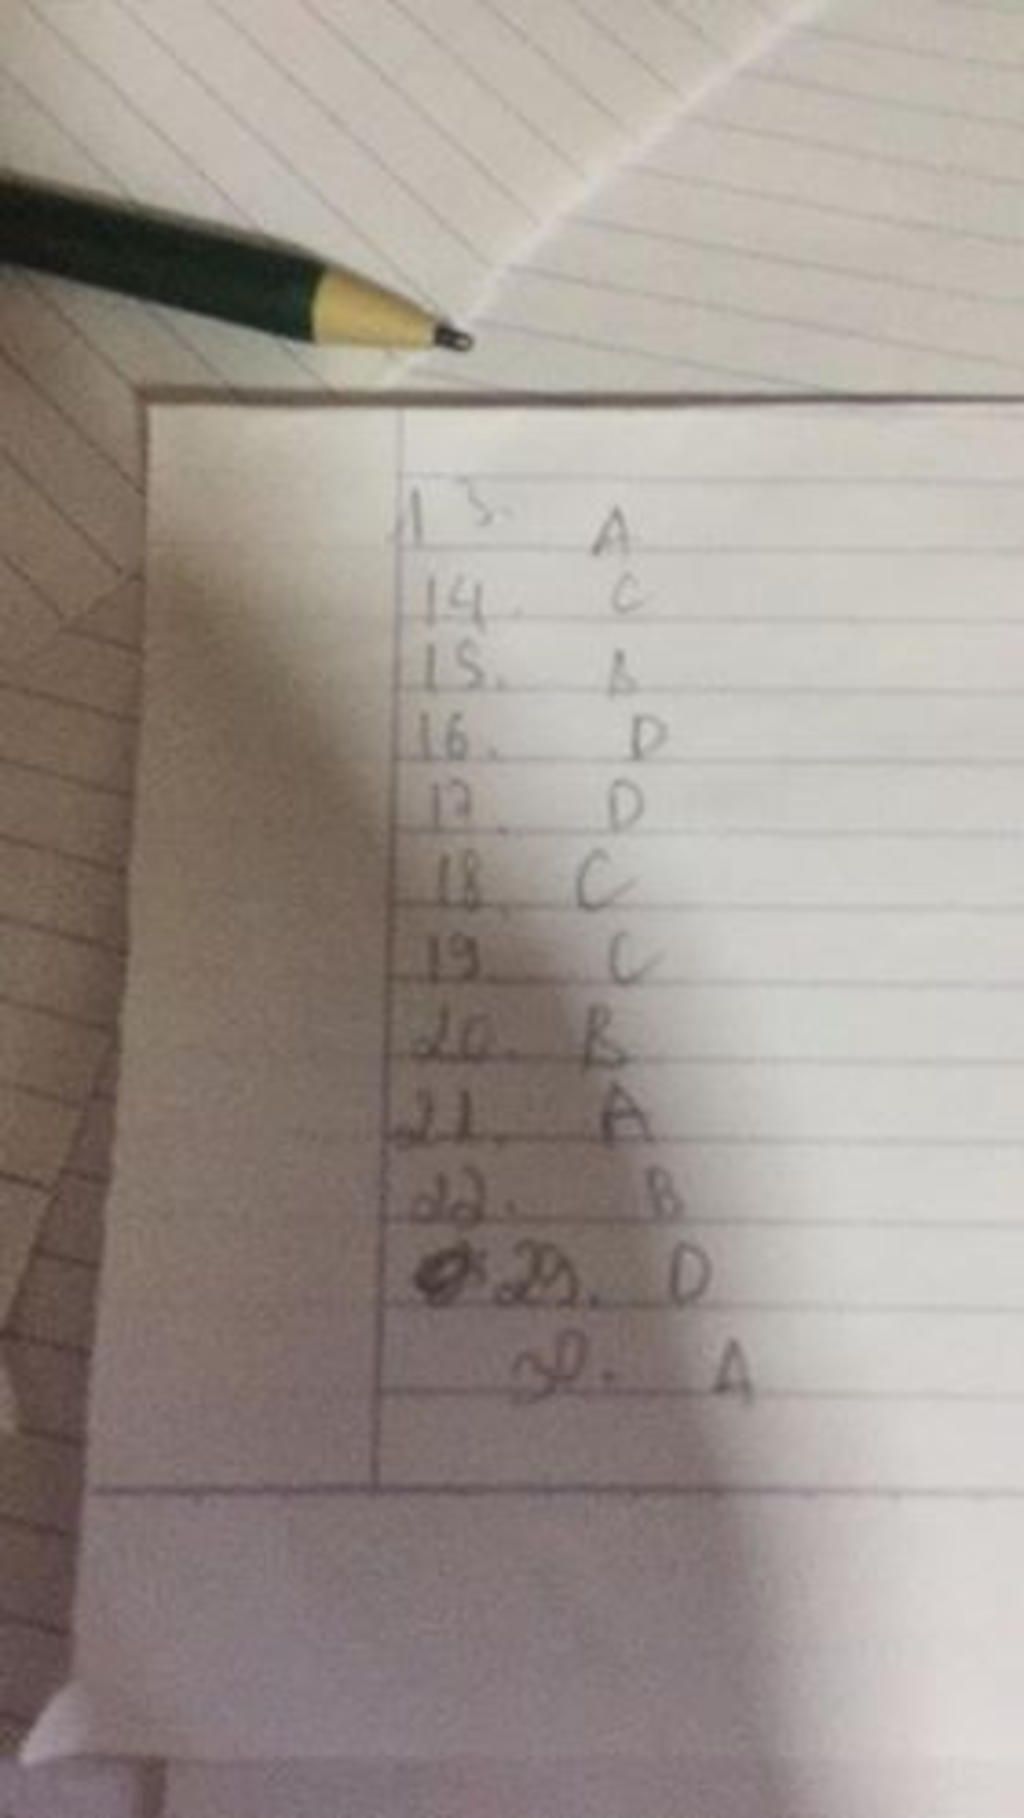 13. A
14. C
15. B
16. D
17. D
18. C
19 C
20. B
21. A
22. B
29. D
30. A